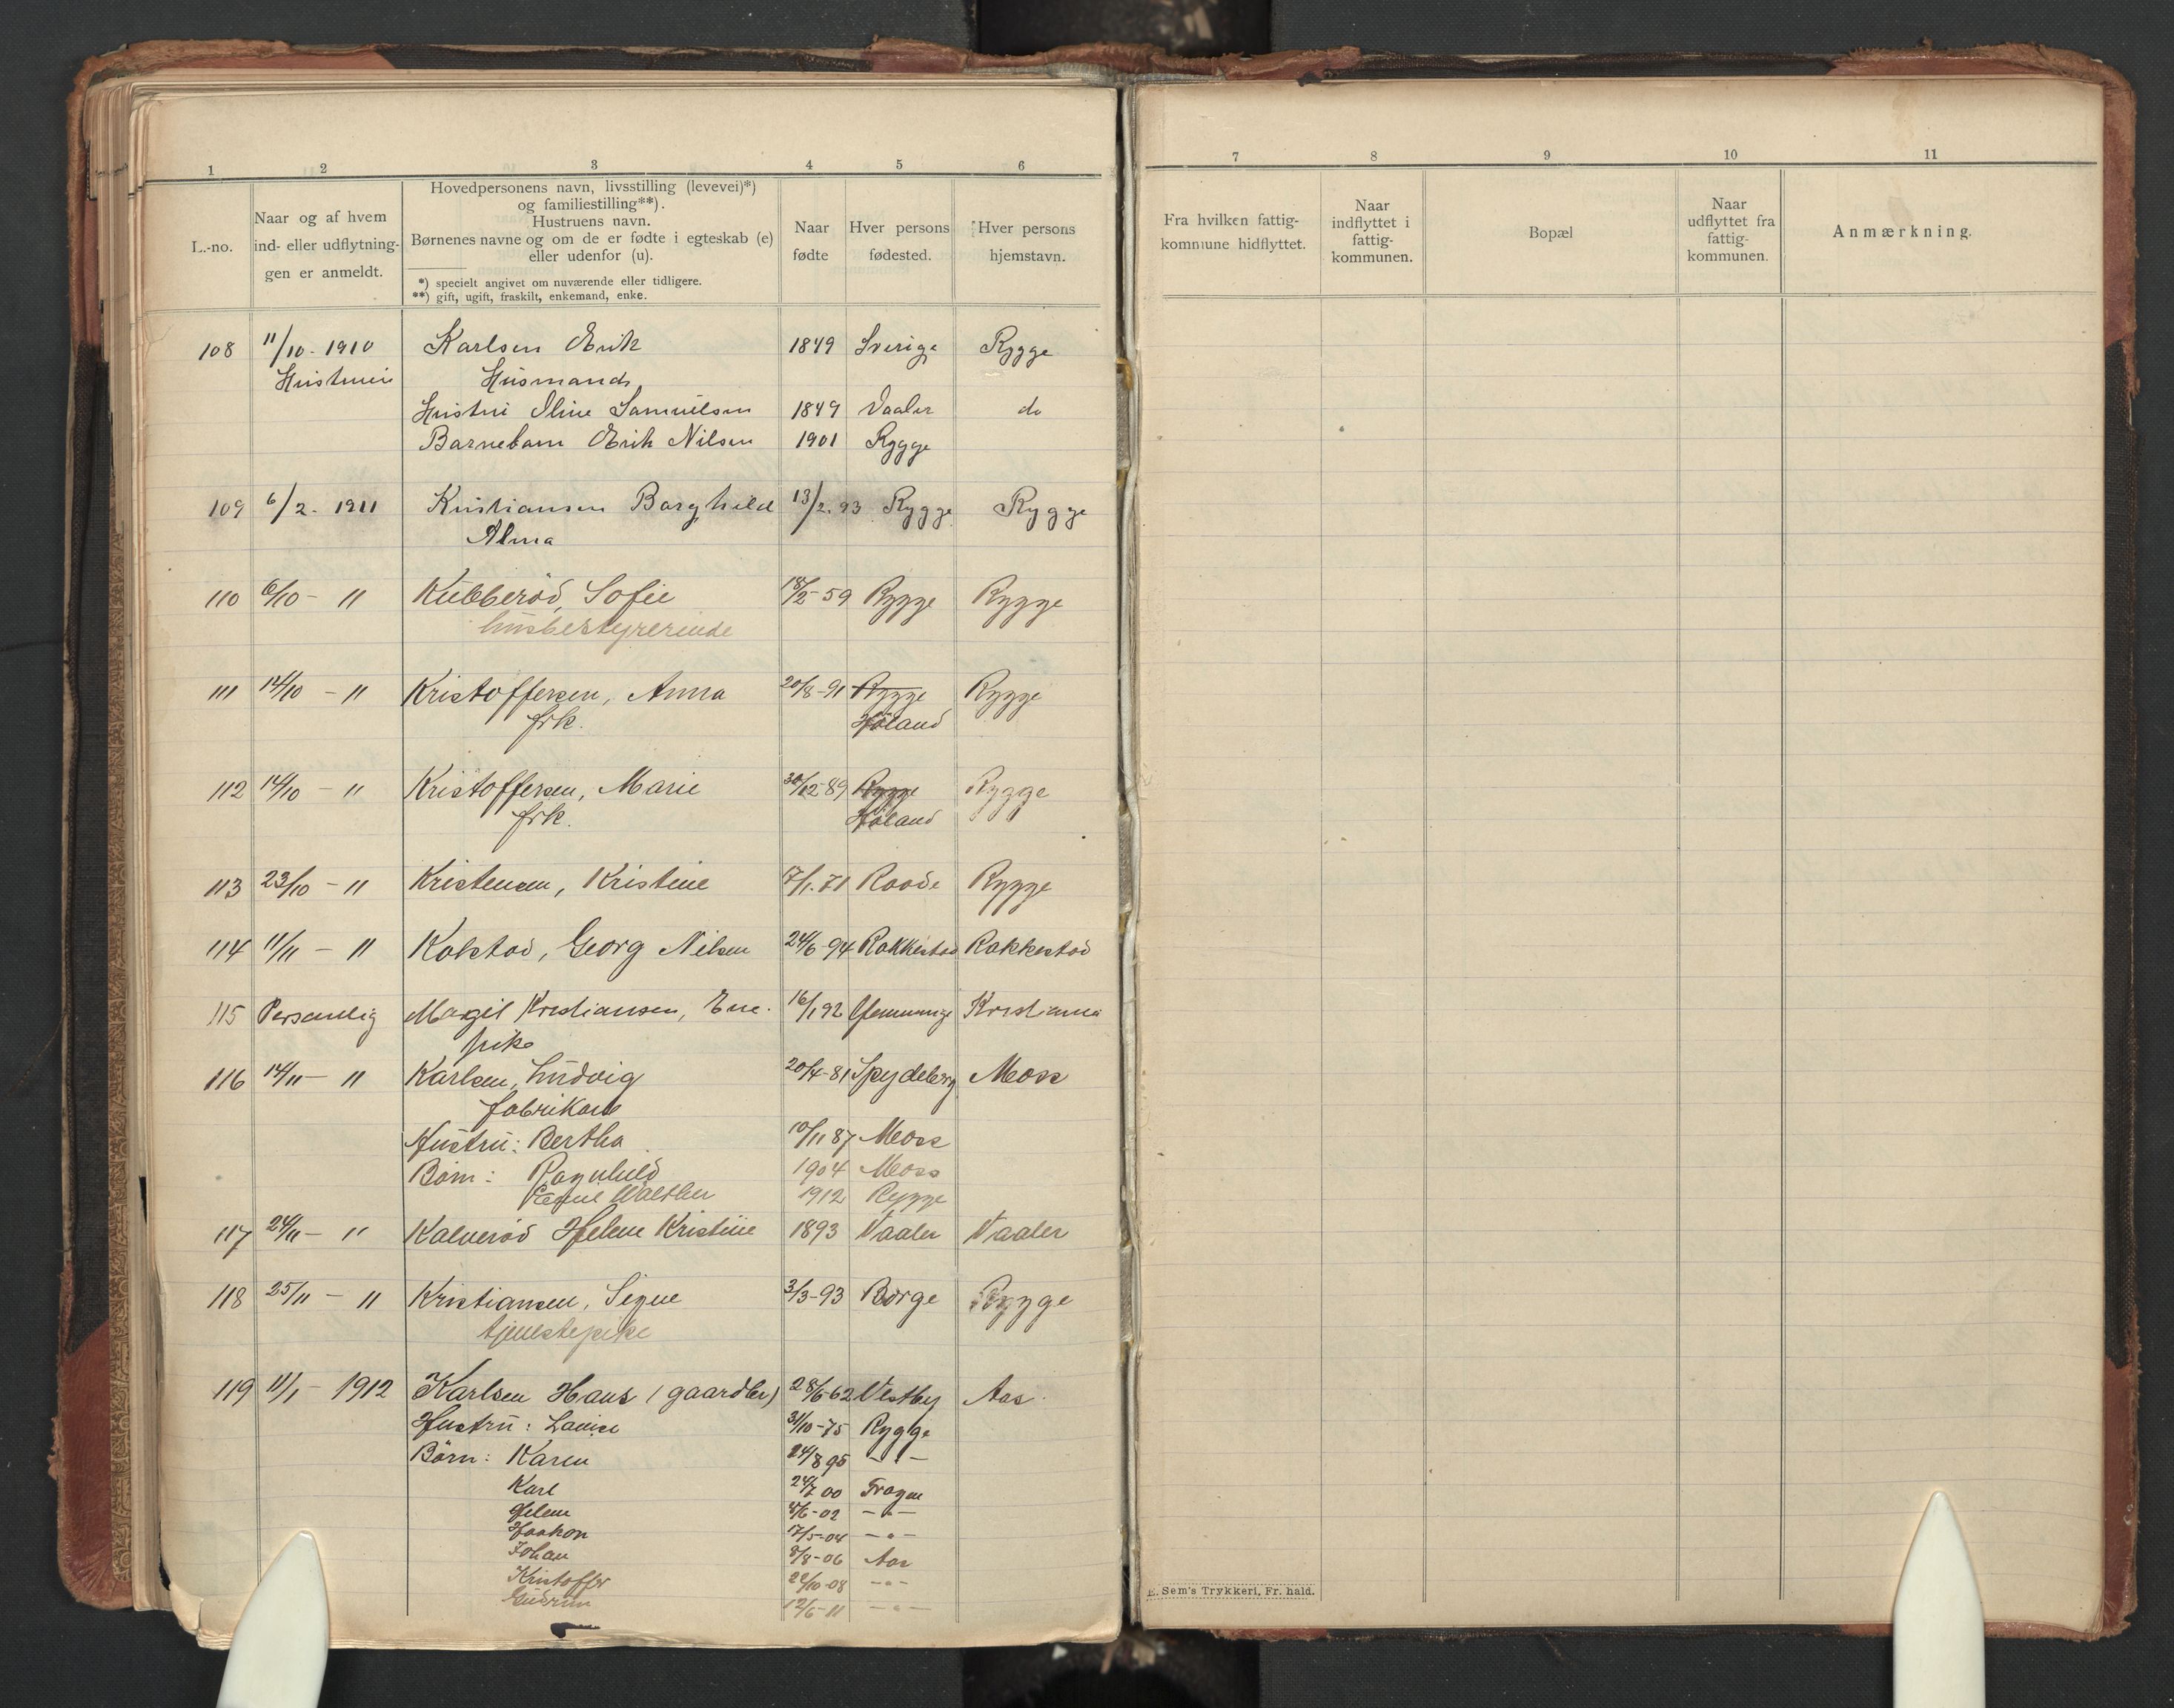 1 2 3 4 5 6
L.-no.
Naar og af hvem
ind- eller udflytnin-
gen er anmeldt.
Hovedpersonens navn, livsstilling (levevei)*)
og familiestilling**).
Hustruens navn.
Børnenes navne og om de er fødte i egteskab (e)
eller udenfor (u).
*) specielt angivet om nuværende eller tidligere.
**) gift, ugift, fraskilt, enkemand, enke.
Naar
fødte
Hver persons
fødested.
Hver persons
hjemstavn.
108 11/10 - 1910 Karlsen Erik 1849 Sverige Rygge
Hustruen Husmand
Hustru Oline Samuelsen 1849 Vaaler do
Barnebarn Erik Nilsen 1901 Rygge
109 6/2 - 1911 Kristiansen Borghild 13/2. 93 Rygge Rygge
Alma
110 6/10 - " Kubberød, Sofie 18/2-59 Rygge Rygge
husbestyrerinde
111 14/10 - " Kristoffersen, Anna 20/8-91 Rygge Rygge
frk. Høland
112 14/10 - " Kristoffersen, Marie 30/12 89 Rygge Rygge
frk. Høland
113 23/10 - " Kristensen, Kristine 17/1. 71 Raade Rygge
114 11/11 - " Kolstad, Georg Nilsen 24/6-94 Rakkestad Rakkestad
115 Personlig Margit Kristiansen, 16/1 92 Kristiania
116 14/11 - " Karlsen, Ludvig 20/4-81 Spydeberg Moss
fabrikarb
Hustru: Bertha 10/11 87 Moss
Børn: Ragnhild 1904 Moss
Walther 1912 Rygge
117 24/11 - " Kalnerød Helene Kristine 1893 Vaaler Vaaler
118 25/11 - " Kristiansen, Signe 3/3-93 Borge Rygge
tjenestepike
119 11/1 - 1912 Karlsen Hans (gaardbr) 28/6-62 Vestby Aas
Hustru: Louise 31/10-75 Rygge
Børn: Karen 24/8 95 - " -
Karl 24/7 00 Frogn
Helene 4/6-02 - " -
Haakon 17/5-04 - " -
Johan 8/8-06 Aas
Kristoffer 22/10-08 - " -
Gudrun 12/6-11 - " -
7 8 9 10 11
Fra hvilken fattig-
kommune hidflyttet.
Naar
indflyttet i
fattig-
kommunen.
Bopæl
Naar
udflyttet fra
fattig-
kommunen.
Anmærkning.
E. Sem's Trykkeri, Fr. hald.